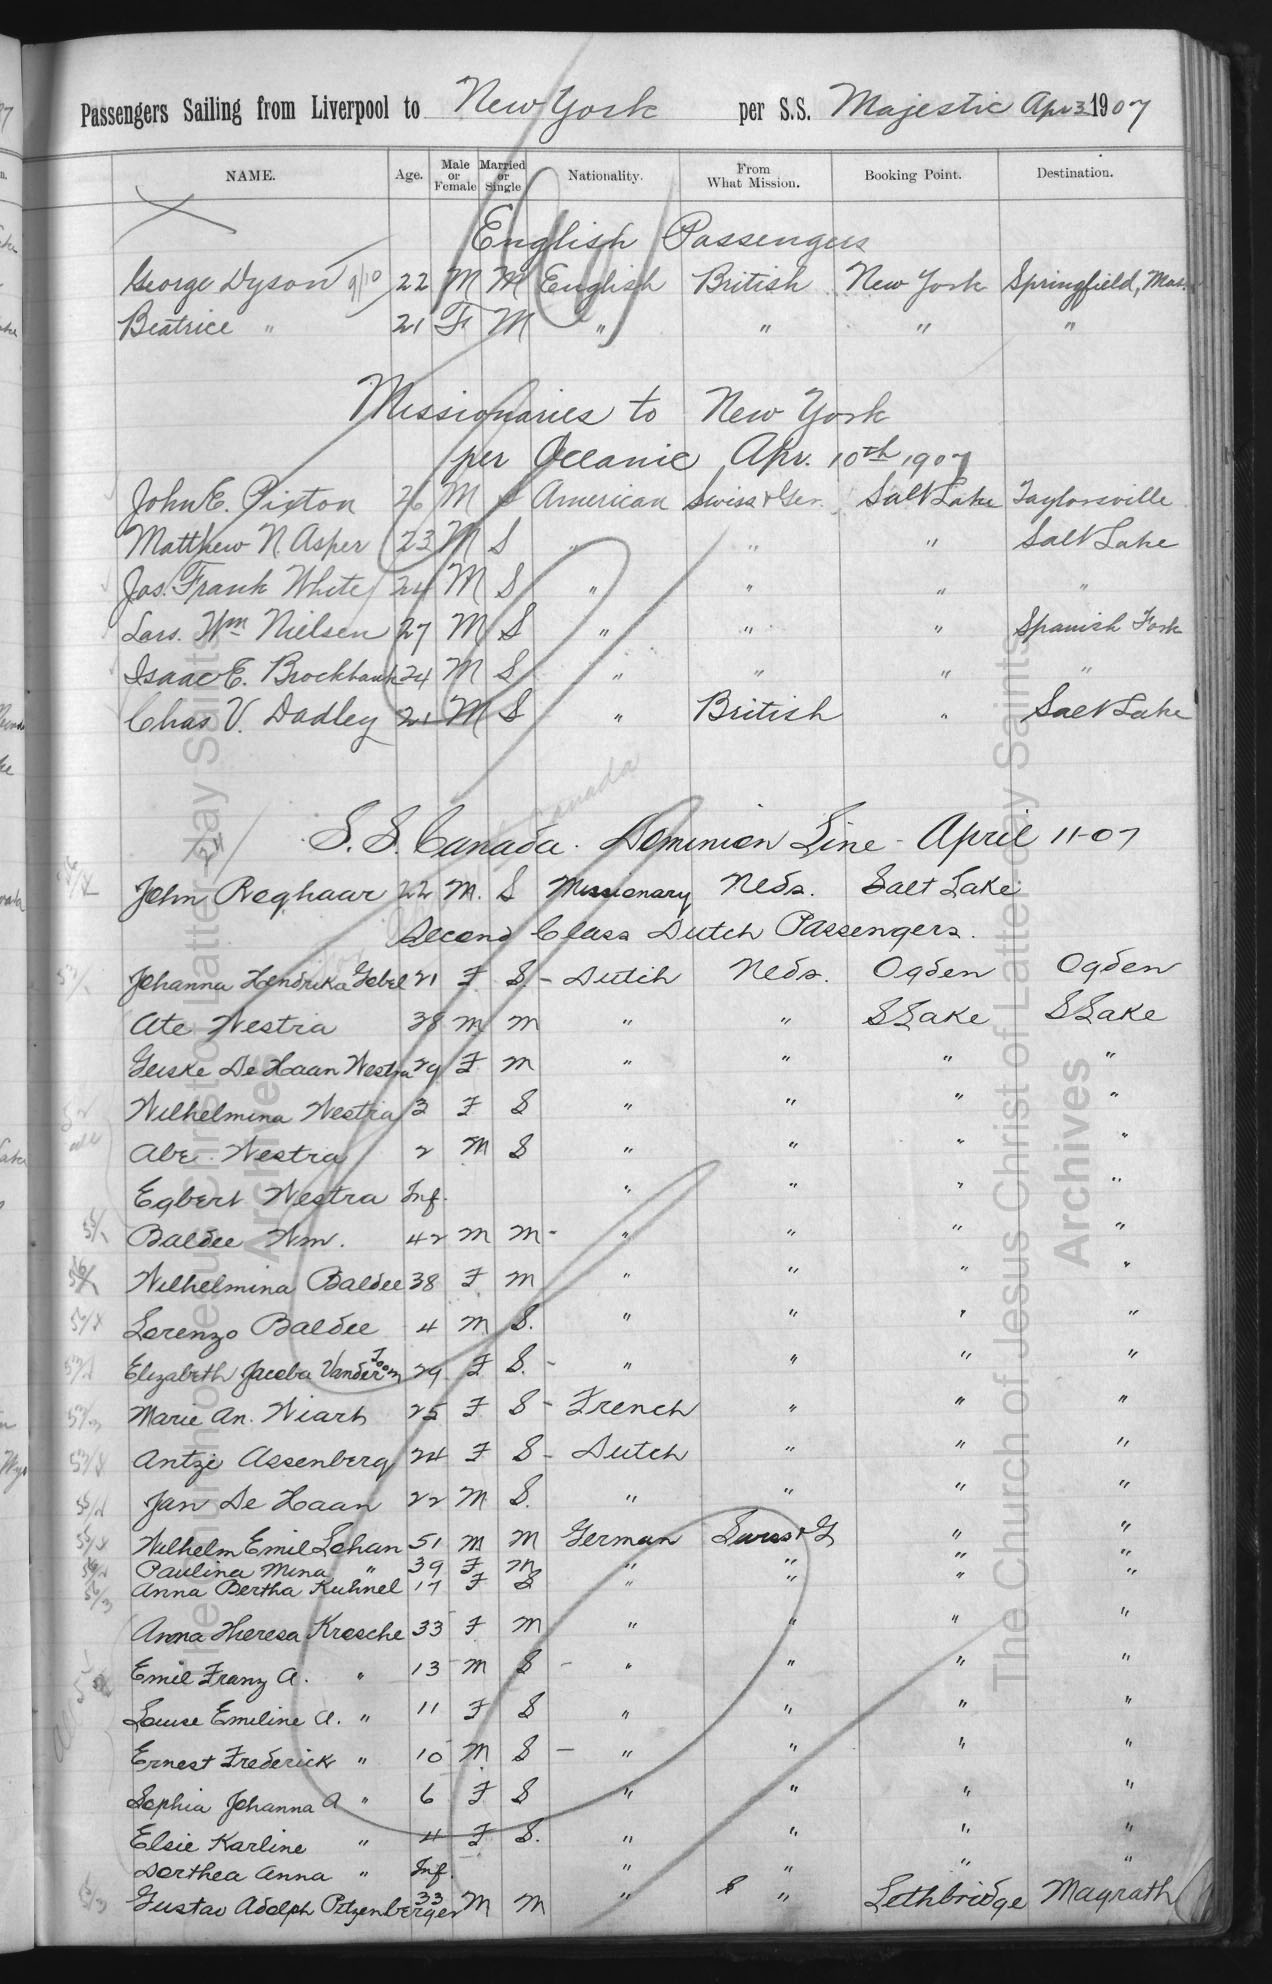 Passengers Sailing from Liverpool to New York per S.S. Majestic Apr 3 1907
NAME. Age. Male or Female Married or Single Nationality. From What Mission. Booking Point. Destination.
English Passengers
George Dyson 9/10 22 M M English British New York Springfield, Mass.
Beatrice " 21 F M " " " "
Missionaries to New York
per Oceanic Apr. 10th 1907
John E. Pixton 26 M S American Swiss & Ger. Salt Lake Taylorsville
Matthew N. Asper 23 M S " " " Salt Lake
Jas. Frank White 24 M S " " " "
Lars. Wm Nielsen 27 M S " " " Spanish Fork
Isaac E. Brockbank 24 M S " " " "
Chas V. Dadley 21 M S " British " Salt Lake
Canada
S. S. Canada. Dominion Line - April 11-07
John Roghaar 22 M. S Missionary Neds. Salt Lake
Second Class Dutch Passengers.
Johanna Hendrika Gebel 21 F S. - Dutch Neds. Ogden Ogden
Ate Westra 38 M M " " S Lake S Lake
Geiske De Haan Westra 29 F M " " " "
Wilhelmina Westra 3 F S " " " "
Abe. Westra 2 M S " " " "
Egbert Westra Inf. " " " "
Baldee Wm. 42 M M - " " " "
Wilhelmina Baldee 38 F M " " " "
Lorenzo Baldee 4 M S. " " " "
Elizabeth Jacoba Vander Toom 29 F S. - " " " "
Marie An. Wiart 25 F S - French " " "
Antzi Assenberg 24 F S - Dutch " " "
Jan De Haan 22 M S. " " " "
Wilhelm Emil Lohan 51 M M German Swiss & G " "
Paulina Mina " 39 F M " " " "
Anna Bertha Kuhnel 17 F S " " " "
Anna Theresa Krosche 33 F M " " " "
Emil Franz A. " 13 M S - " " " "
Louise Emeline A. " 11 F S " " " "
Ernest Frederick " 10 M S - " " " "
Sophia Johanna A " 6 F S " " " "
Elsie Karline " 4 F S. " " " "
Dorthea Anna " Inf. " " " "
Gustav Adolph Pitzenberger 33 M M " " Lethbridge Magrath
The Church of Jesus Christ of Latter-day Saints
Archives
The Church of Jesus Christ of Latter-day Saints
Archives